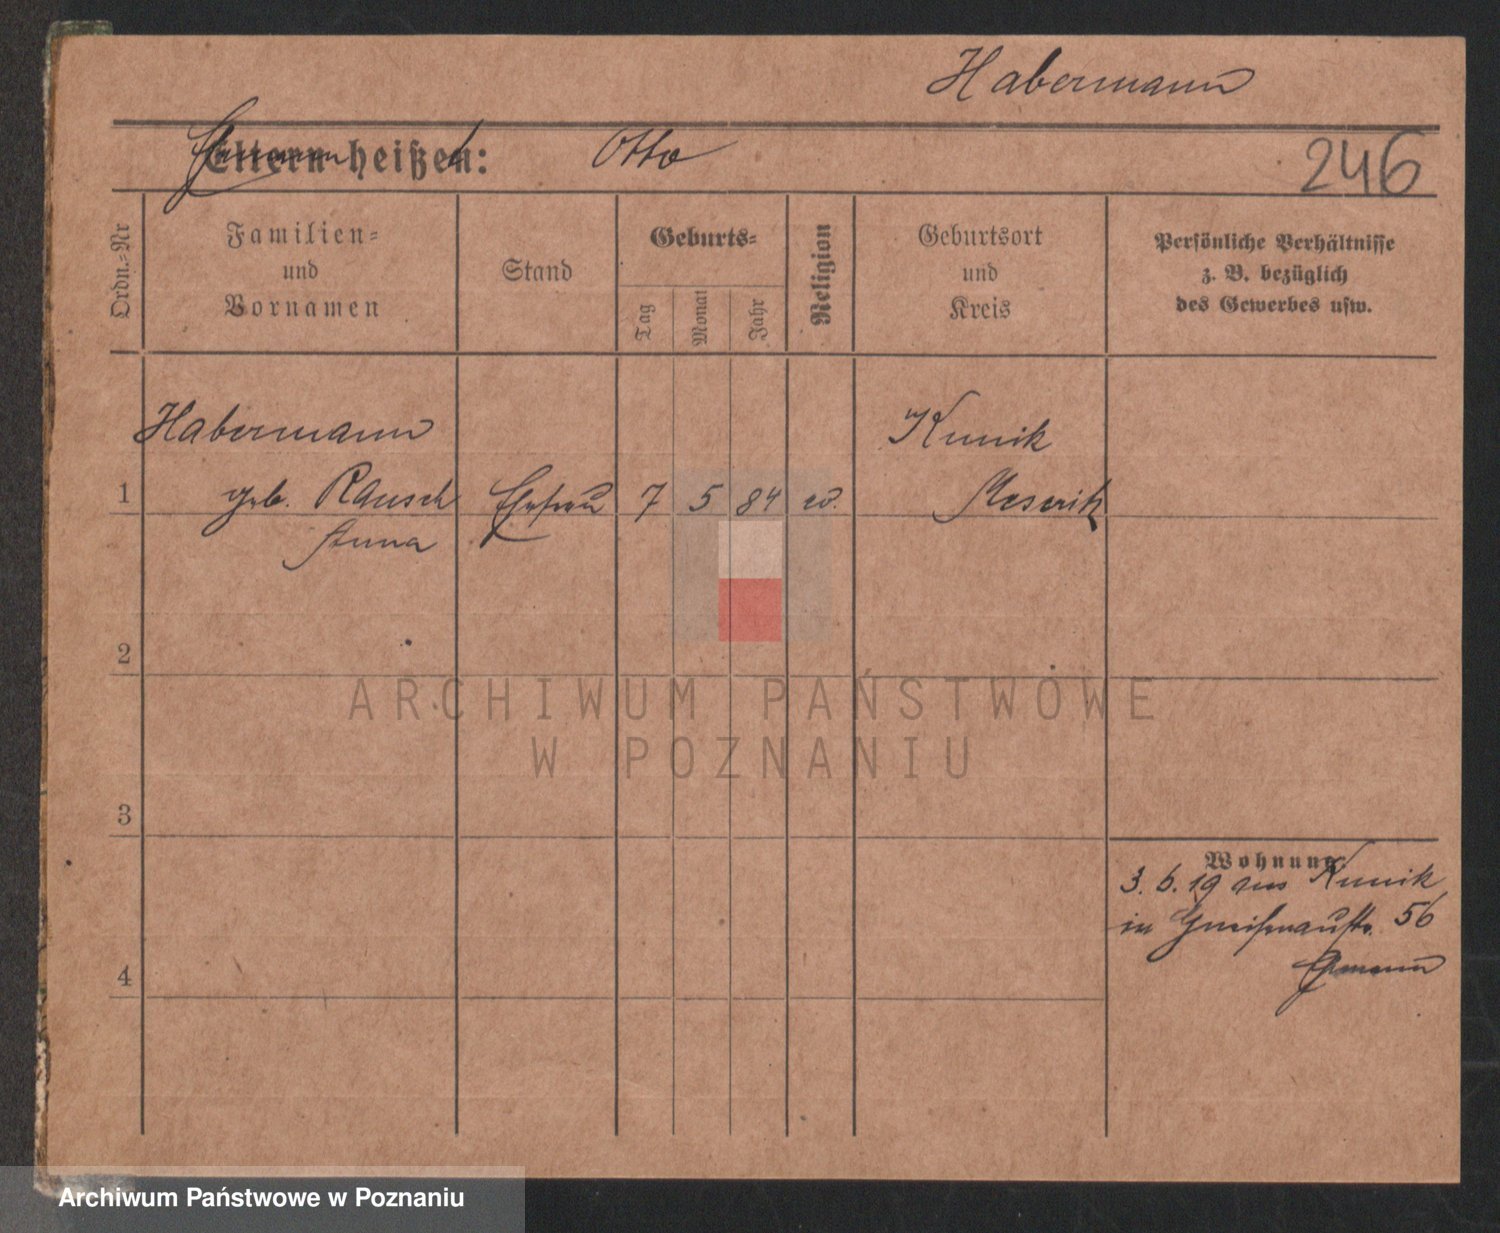 Habermann
Eltern heißen: Otto
246
Ordn.-Nr
Familien-
und
Vornamen
Stand
Geburts-
Tag
Monat
Jahr
Religion
Geburtsort
und
Kreis
Persönliche Verhältnisse
z. B. bezüglich
des Gewerbes usw.
Habermann
Kunik
1 geb. Rausch Ehefrau 7 5 84 ev. Meserik
Anna
2
3
4
Wohnung:
3. 6. 19 aus Kunik
in Gneisenaustr. 56
ARCHIWUM PAŃSTWOWE
W POZNANIU
Archiwum Państwowe w Poznaniu